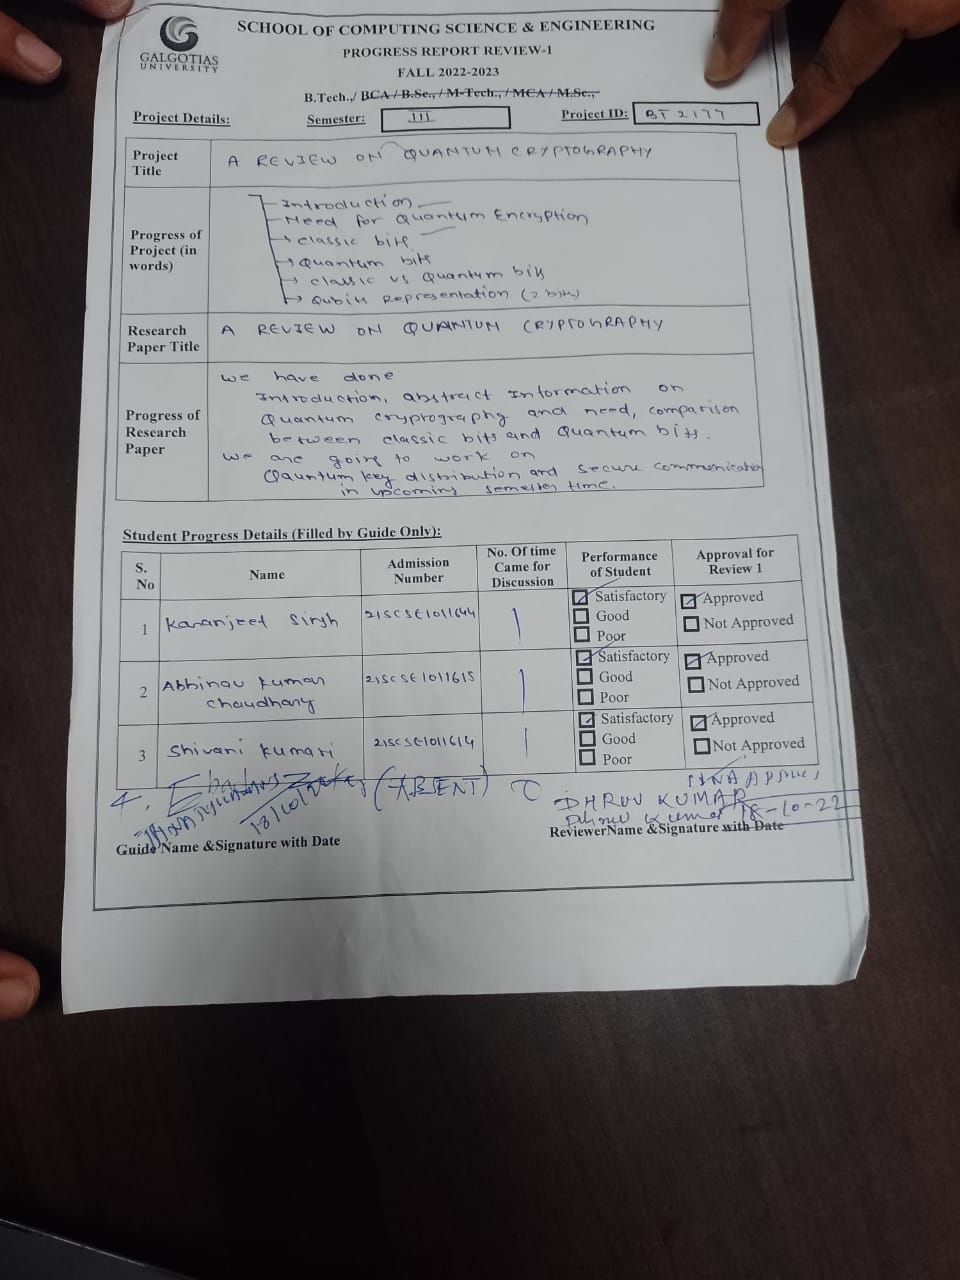 GALGOTIAS
UNIVERSITY
SCHOOL OF COMPUTING SCIENCE & ENGINEERING
PROGRESS REPORT REVIEW-1
FALL 2022-2023
B.Tech./ BCA / B.Sc., / M-Tech., / MCA / M.Sc.,
Project Details:
Semester: III
Project ID: BT 2177
Project
Title
A REVIEW ON QUANTUM CRYPTOGRAPHY
Progress of
Project (in
words)
Introduction
Need for Quantum Encryption
classic bits
Quantum bits
classic vs Quantum bits
Qubits Representation (2 bits)
Research
Paper Title
A REVIEW ON QUANTUM CRYPTOGRAPHY
Progress of
Research
Paper
We have done
Introduction, abstract Information on
Quantum cryptography and need, comparison
between classic bits and Quantum bits.
We are going to work on
Qauntum key distribution and secure communication
in upcoming semester time.
Student Progress Details (Filled by Guide Only):
S.
No
Name
Admission
Number
No. Of time
Came for
Discussion
Performance
of Student
Approval for
Review 1
1
Karanjeet Singh
21SCSE1011644
1
Satisfactory
Good
Poor
Approved
Not Approved
2
Abhinav Kumar
chaudhary
21SCSE1011615
1
Satisfactory
Good
Poor
Approved
Not Approved
3
Shivani Kumari
21SCSE1011614
1
Satisfactory
Good
Poor
Approved
Not Approved
4.
(ABSENT)
18/10/22
DHRUV KUMAR
Dhruv Kumar 18-10-22
Guide Name &Signature with Date
ReviewerName &Signature with Date